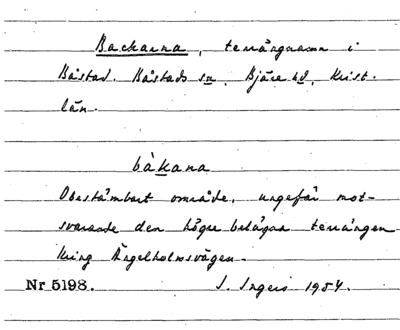 Backarna, terrängnamn i
Båstad. Båstads sn. Bjäre hd, Krist.
län.
bàkana
Obestämbart område, ungefär mot-
svarande den högre belägna terrängen
kring Ängelholmsvägen.
Nr 5198. I. Ingers 1954.